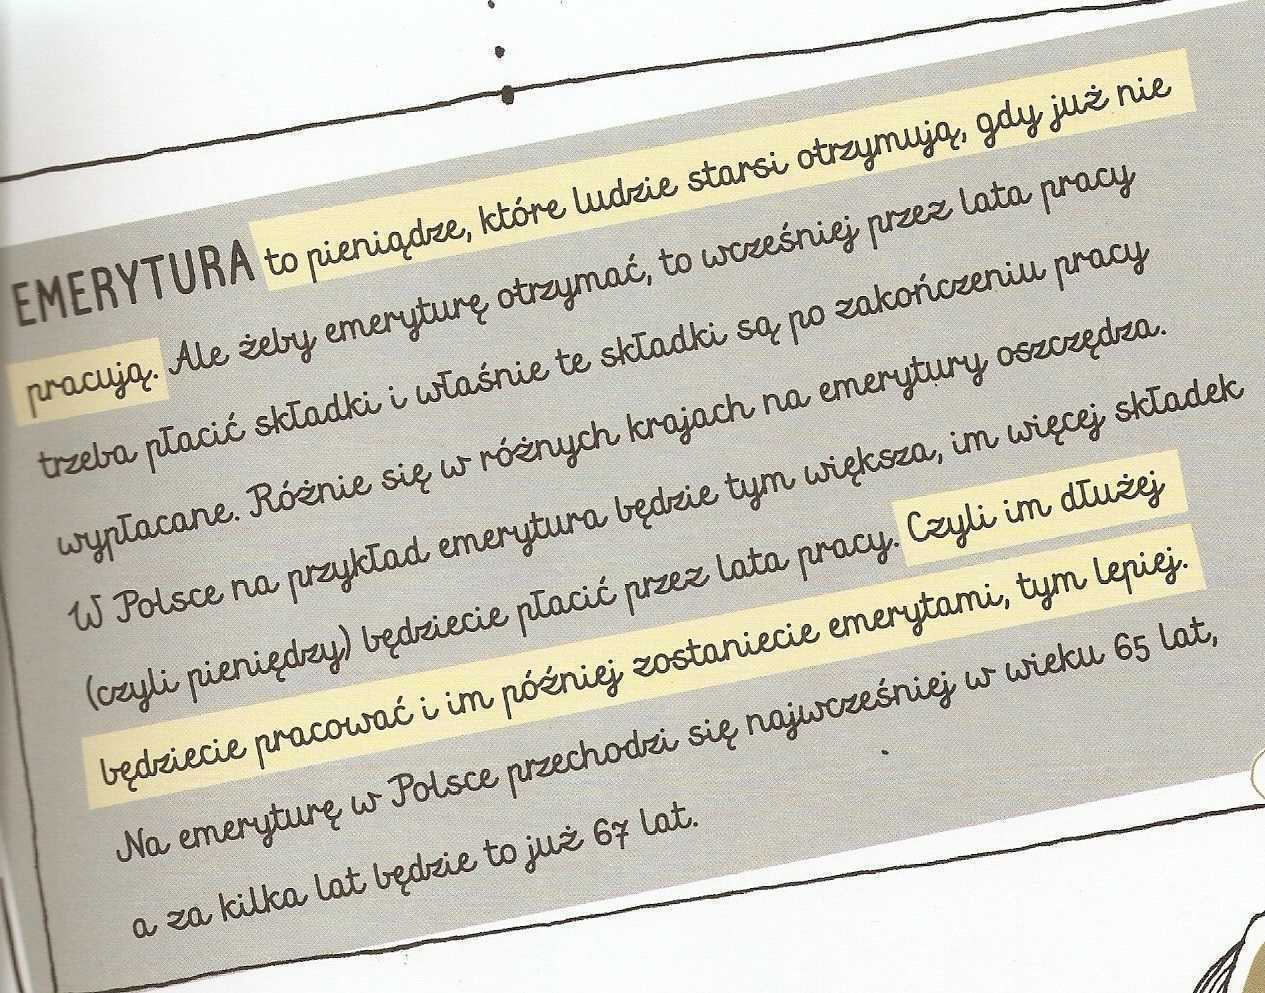 EMERYTURA to pieniądze, które ludzie starsi otrzymują, gdy już nie
pracują. Ale żeby emeryturę otrzymać, to wcześniej przez lata pracy
trzeba płacić składki i właśnie te składki są po zakończeniu pracy
wypłacane. Różnie się w różnych krajach na emerytury oszczędza.
W Polsce na przykład emerytura będzie tym większa, im więcej składek
(czyli pieniędzy) będziecie płacić przez lata pracy. Czyli im dłużej
będziecie pracować i im później zostaniecie emerytami, tym lepiej.
Na emeryturę w Polsce przechodzi się najwcześniej w wieku 65 lat,
a za kilka lat będzie to już 67 lat.